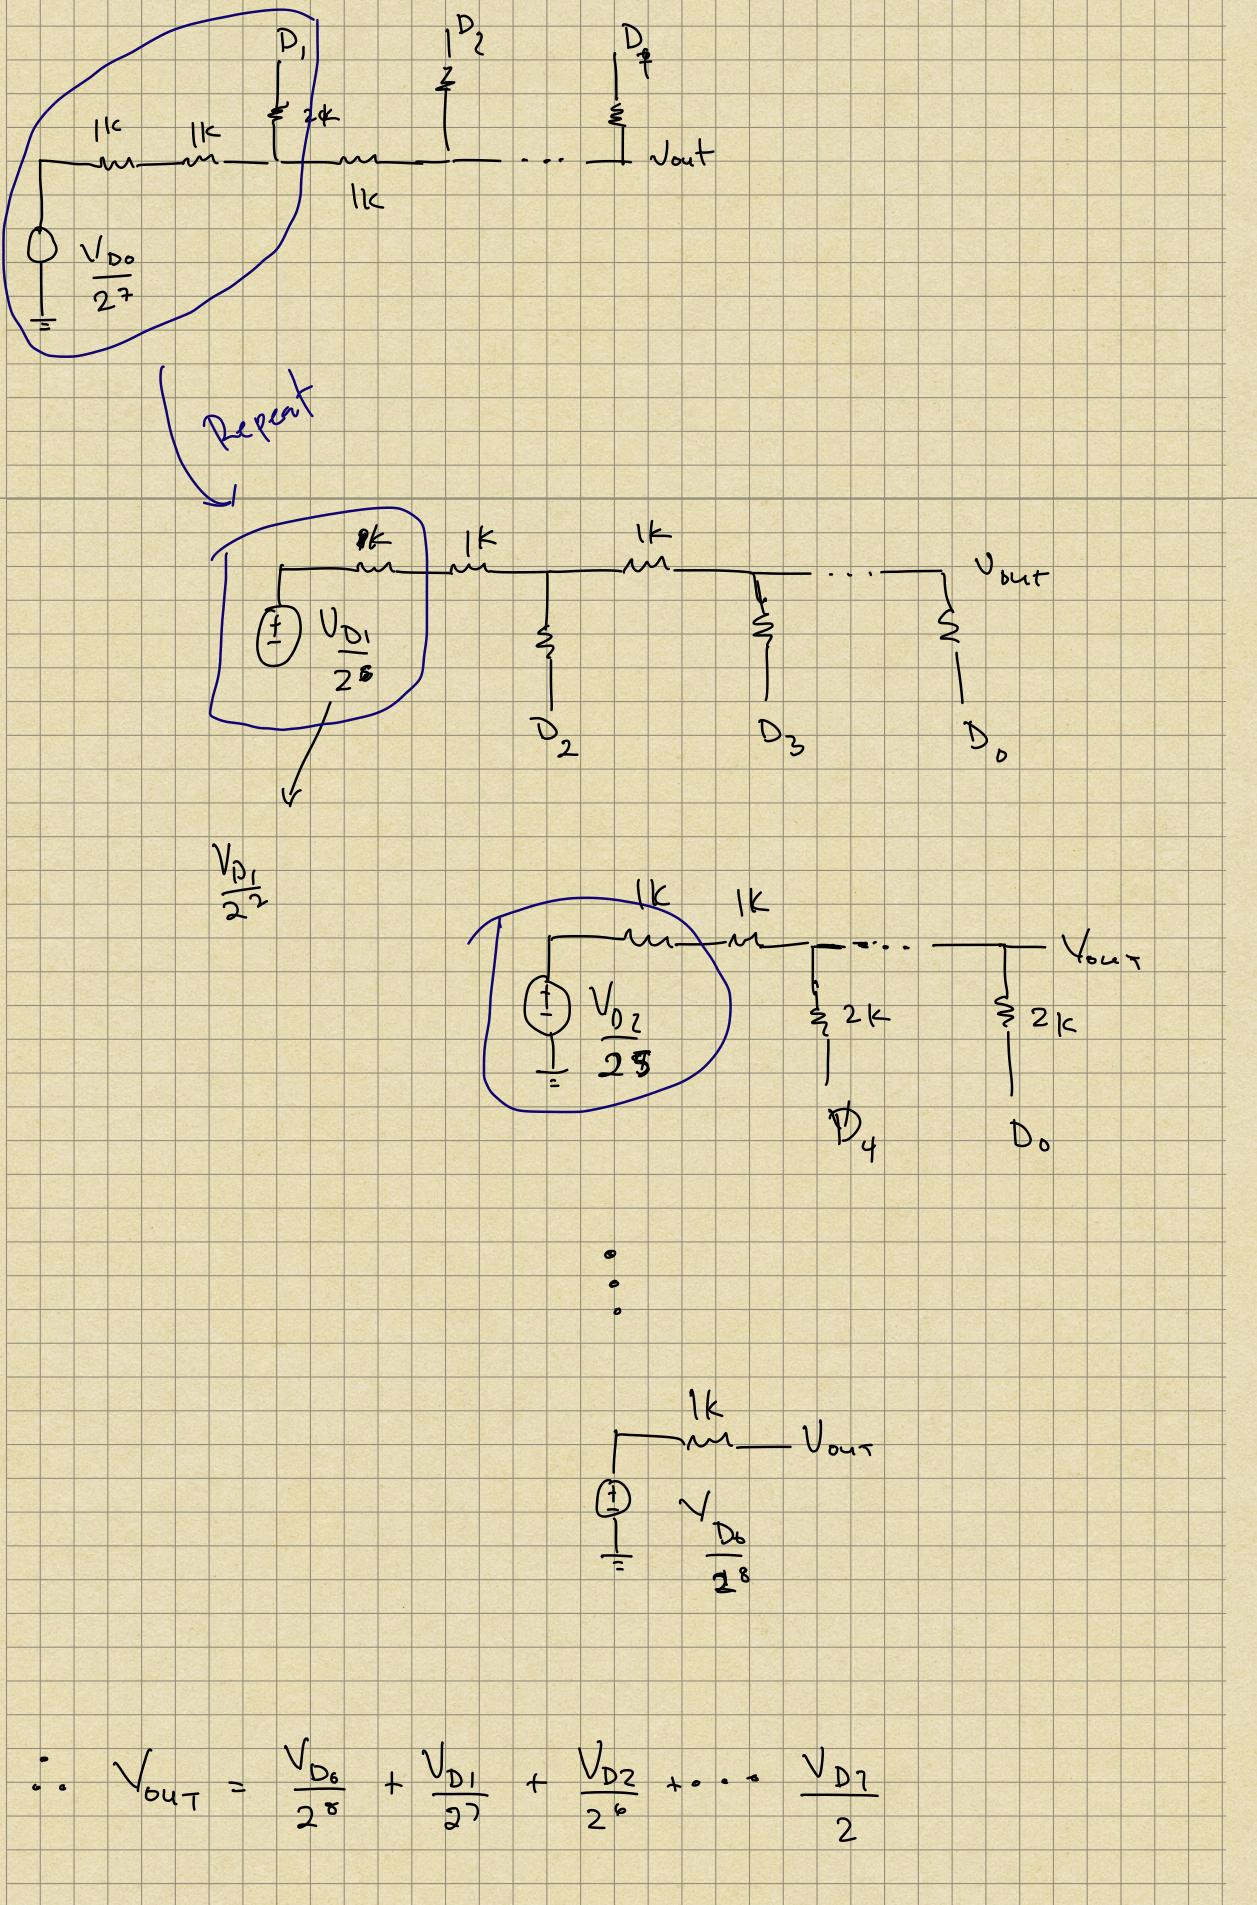 D₁ D₂ D₇
2K
1K 1K
Vout
1K
V_D0 / 2⁷
Repeat
1K 1K
Vout
V_D1
D₂ D₃ D₀
V_D1 / 2²
1K 1K
VOUT
V_D2
2K 2K
D₄ D₀
1K
VOUT
V_D0 / 2⁸
∴ VOUT = V_D0 / 2⁸ + V_D1 / 2⁷ + V_D2 / 2⁶ + ... V_D7 / 2